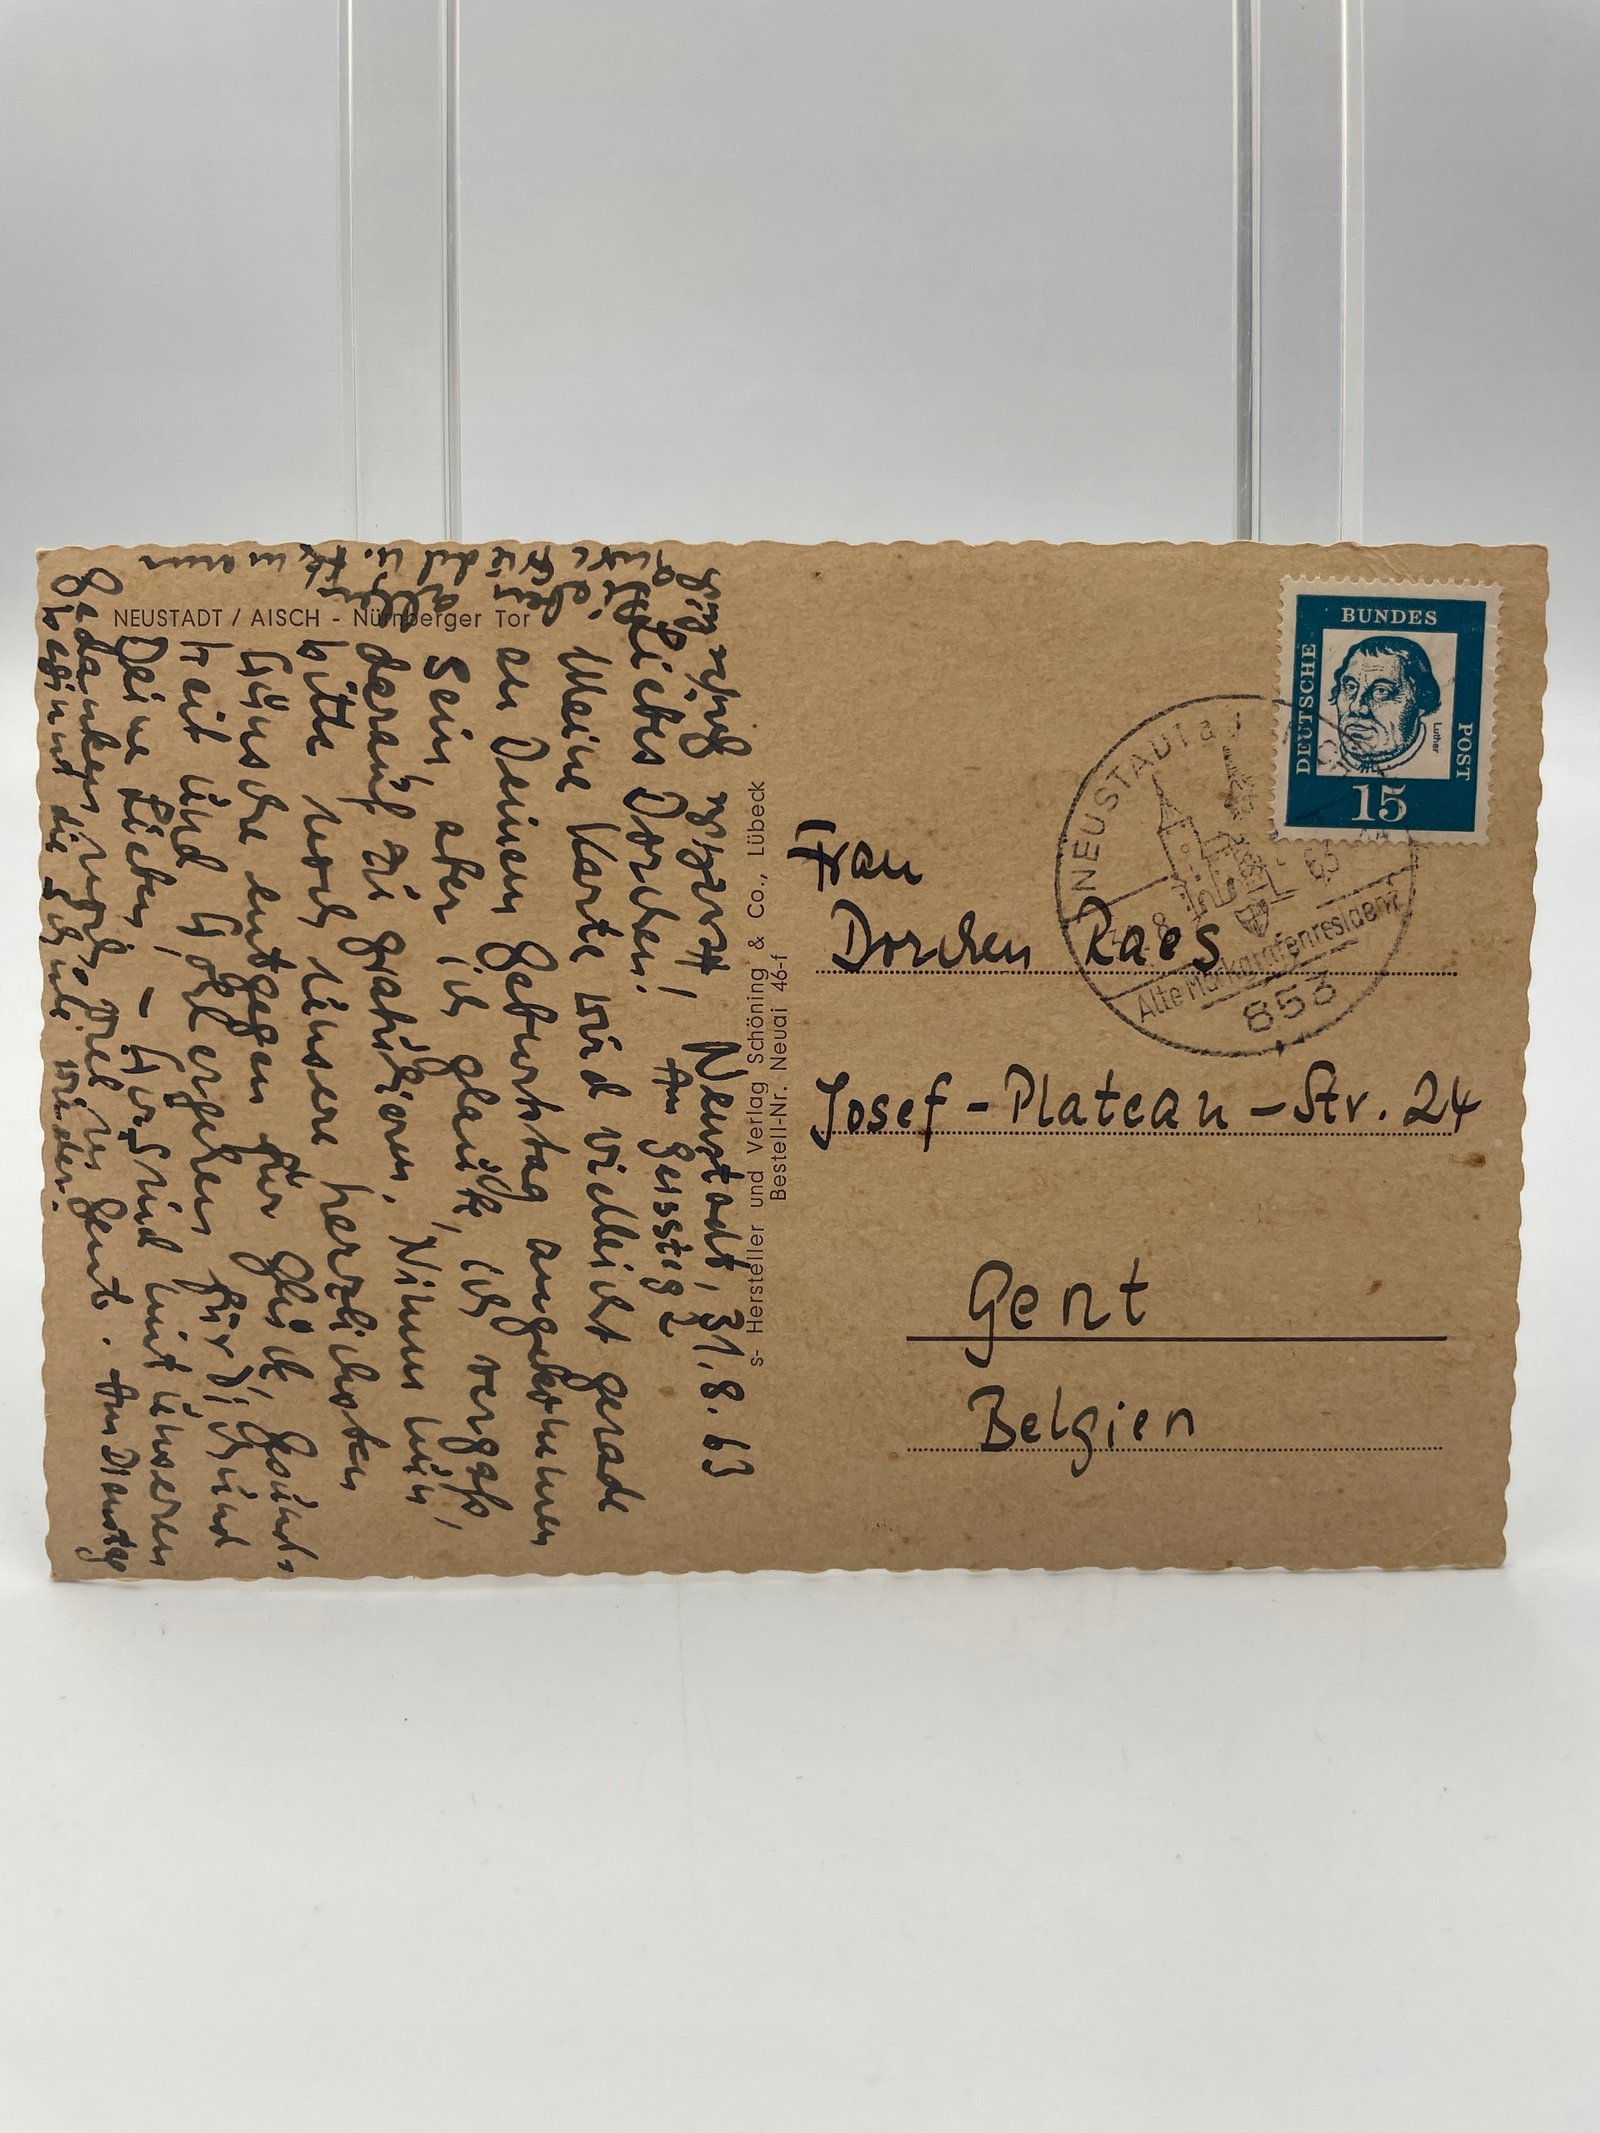 NEUSTADT / AISCH - Nürnberger Tor
Neustadt, 31.8.63
Am Geissteg 2
Liebes Dorchen!
Meine Karte wird vielleicht gerade
an Deinem Geburtstag angekommen
sein aber ich glaub, ich vergaß,
darauf zu gratulieren. Nimm nun
bitte noch unsere herzlichsten
Wünsche entgegen für Glück, Gesund-
heit und Wohlergehen für Dich und
Deine Lieben. – Wir sind mit unseren
Gedanken noch viel in Gent. Am Dienstag
beginnt die Schule wieder.
s- Hersteller und Verlag Schöning & Co., Lübeck
Bestell-Nr. Neuai 46-f
DEUTSCHE
BUNDES
POST
Luther
15
NEUSTADT a d
8
63
Alte Markgrafenresidenz
853
Frau
Dorchen Raes
Josef-Plateau-Str. 24
Gent
Belgien